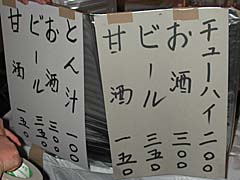 チューハイ 二〇〇
お酒 三〇〇
ビール 三五〇
甘酒 一五〇
とん汁 一〇〇
お酒 三〇〇
ビール 三五〇
甘酒 一五〇